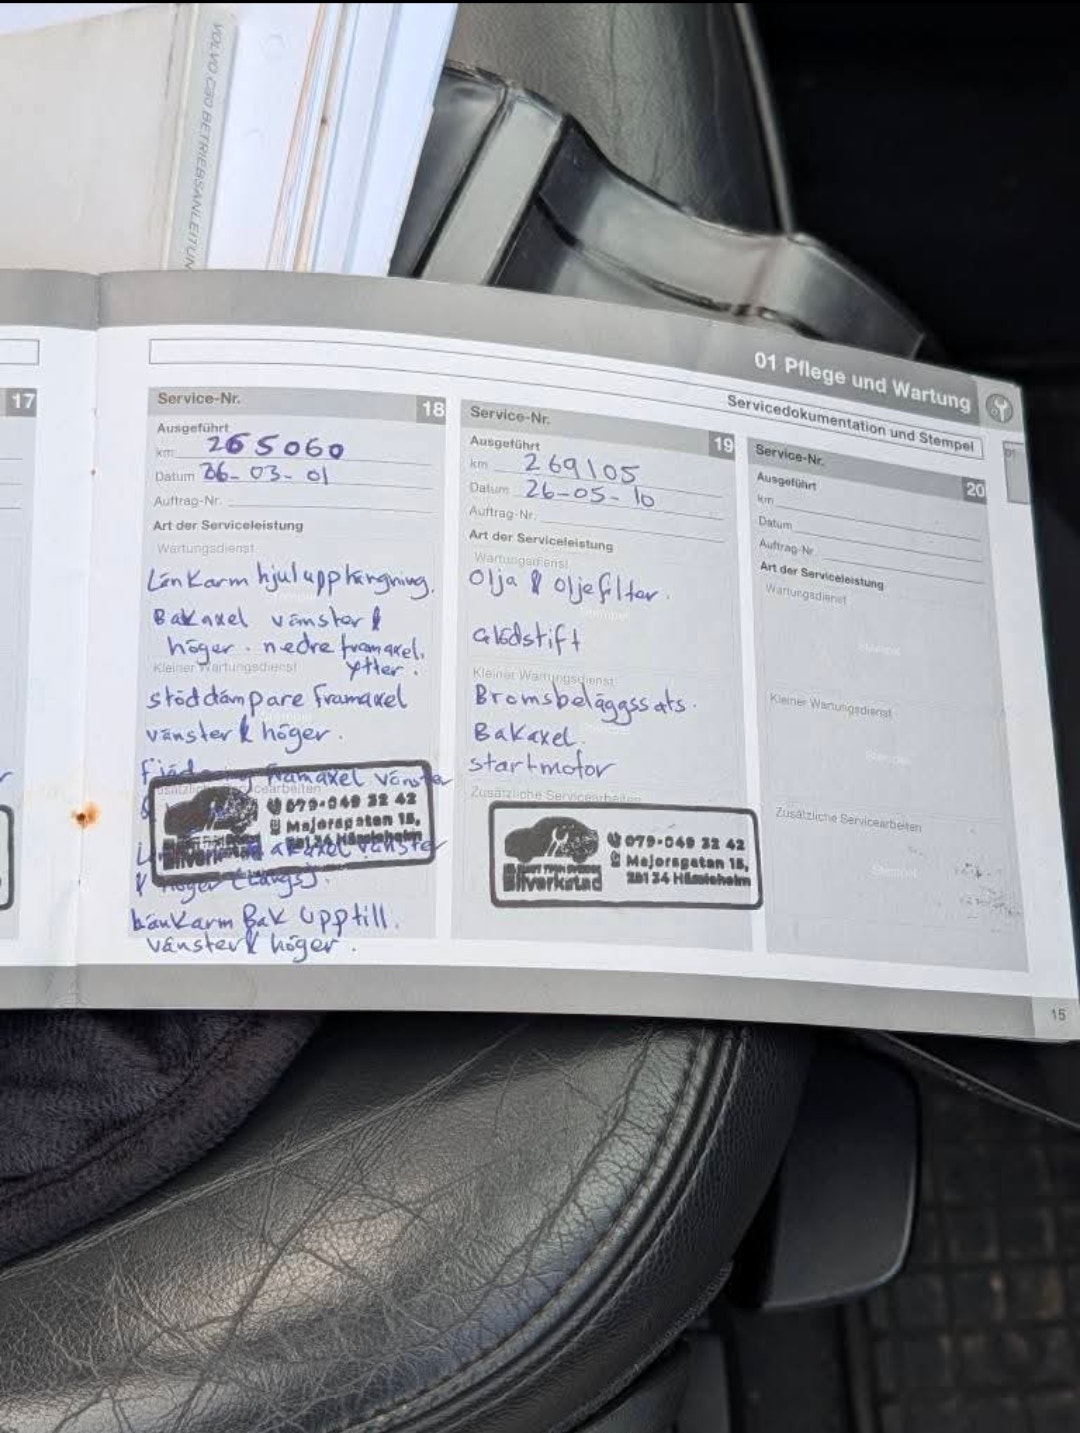 VOLVO C30 BETRIEBSANLEITUN
01 Pflege und Wartung
Servicedokumentation und Stempel
01
17
Service-Nr.
18
Ausgeführt
km 265060
Datum 26-03-01
Auftrag-Nr.
Art der Serviceleistung
Wartungsdienst
Länkarm hjulupphängning.
Bakaxel vänster &
höger. nedre framaxel.
Kleiner Wartungsdienst
ytter.
stöddämpare Framaxel
vänster & höger.
Framaxel vänster
079-049 32 42
Majorsgatan 15,
Bilverkstad
vänster
& höger (Längs).
Länkarm Bak Upptill.
vänster & höger.
Service-Nr.
19
Ausgeführt
km 269105
Datum 26-05-10
Auftrag-Nr.
Art der Serviceleistung
Wartungsdienst
Olja & oljefilter.
Glödstift
Kleiner Wartungsdienst
Bromsbeläggssats.
Bakaxel.
startmotor
Zusätzliche Servicearbeiten
079-049 32 42
Majorsgatan 15,
Bilverkstad
Service-Nr.
20
Ausgeführt
km
Datum
Auftrag-Nr.
Art der Serviceleistung
Wartungsdienst
Stempel
Kleiner Wartungsdienst
Stempel
Zusätzliche Servicearbeiten
Stempel
15